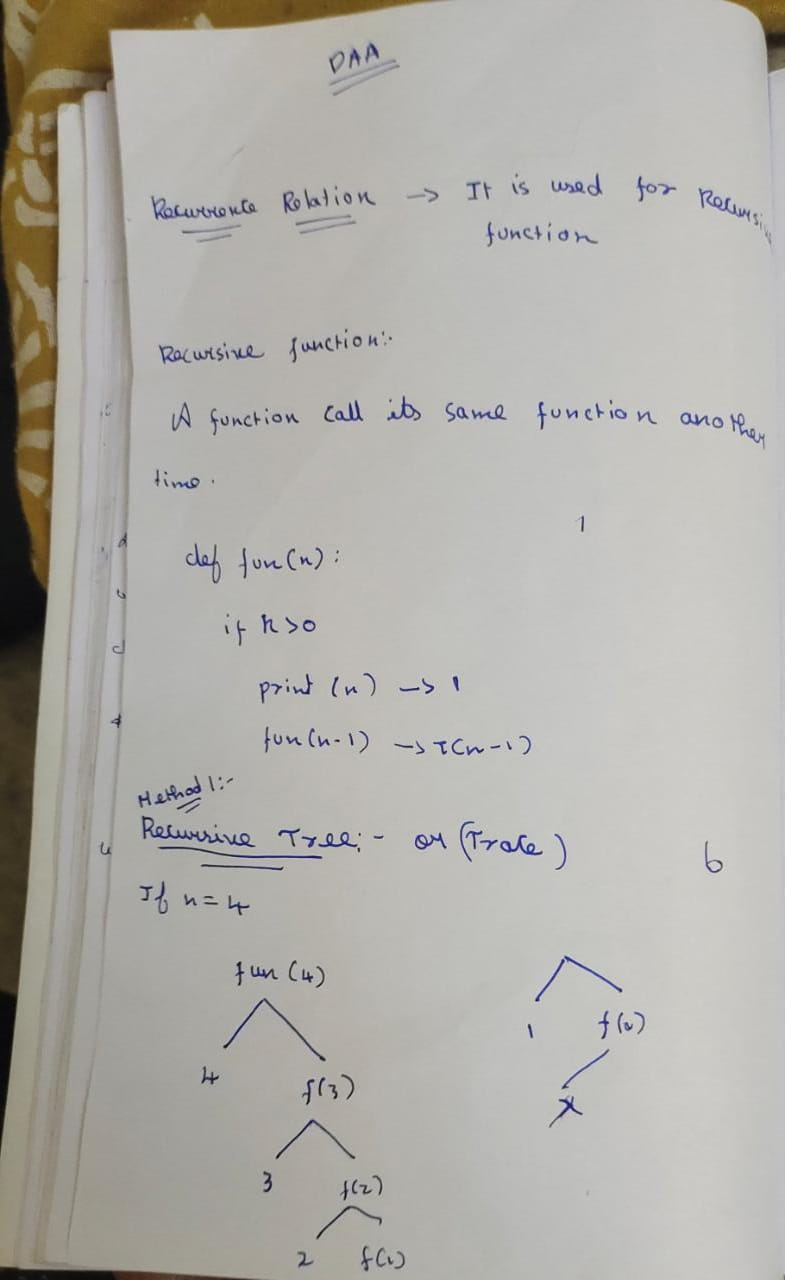 DAA
Recurrence Relation -> It is used for Recursi
function
Recursive function:-
A function call its same function another
time.
1
def fun(n):
if n>0
print (n) -> 1
fun(n-1) -> T(n-1)
Method 1:-
Recursive Tree:- or (Trace)
6
If n=4
fun (4)
4 f(3)
3 f(2)
2 f(1)
1 f(0)
x